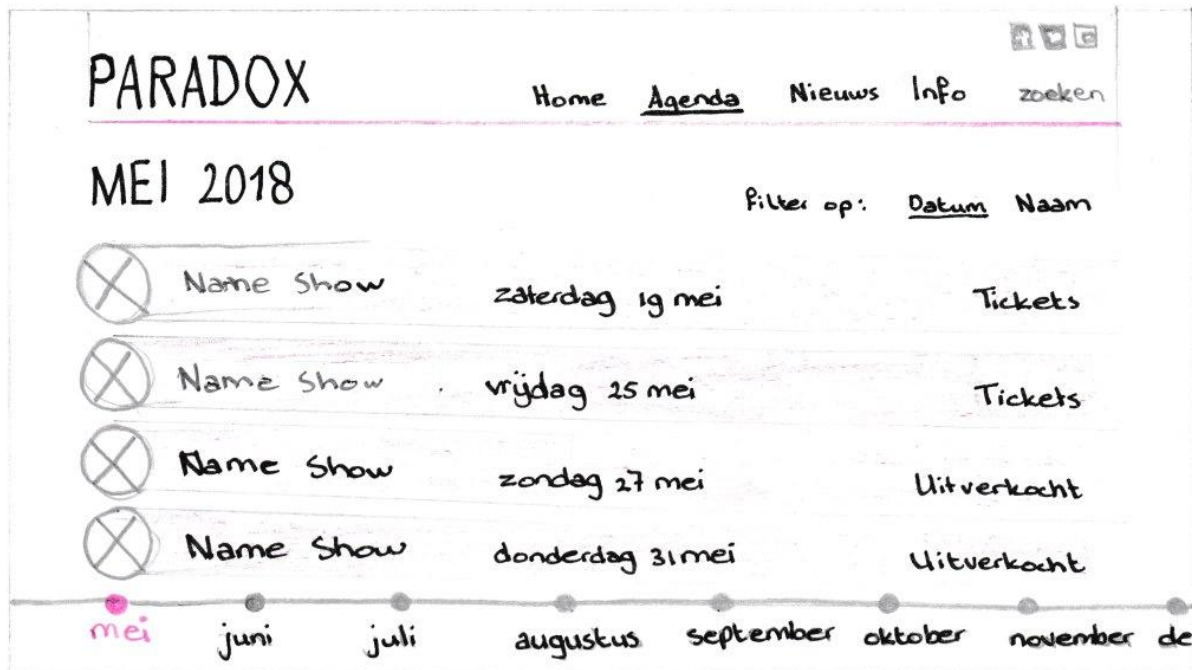 PARADOX
Home Agenda Nieuws Info zoeken
MEI 2018
Filter op: Datum Naam
Name Show zaterdag 19 mei Tickets
Name Show vrijdag 25 mei Tickets
Name Show zondag 27 mei Uitverkocht
Name Show donderdag 31 mei Uitverkocht
mei juni juli augustus september oktober november de